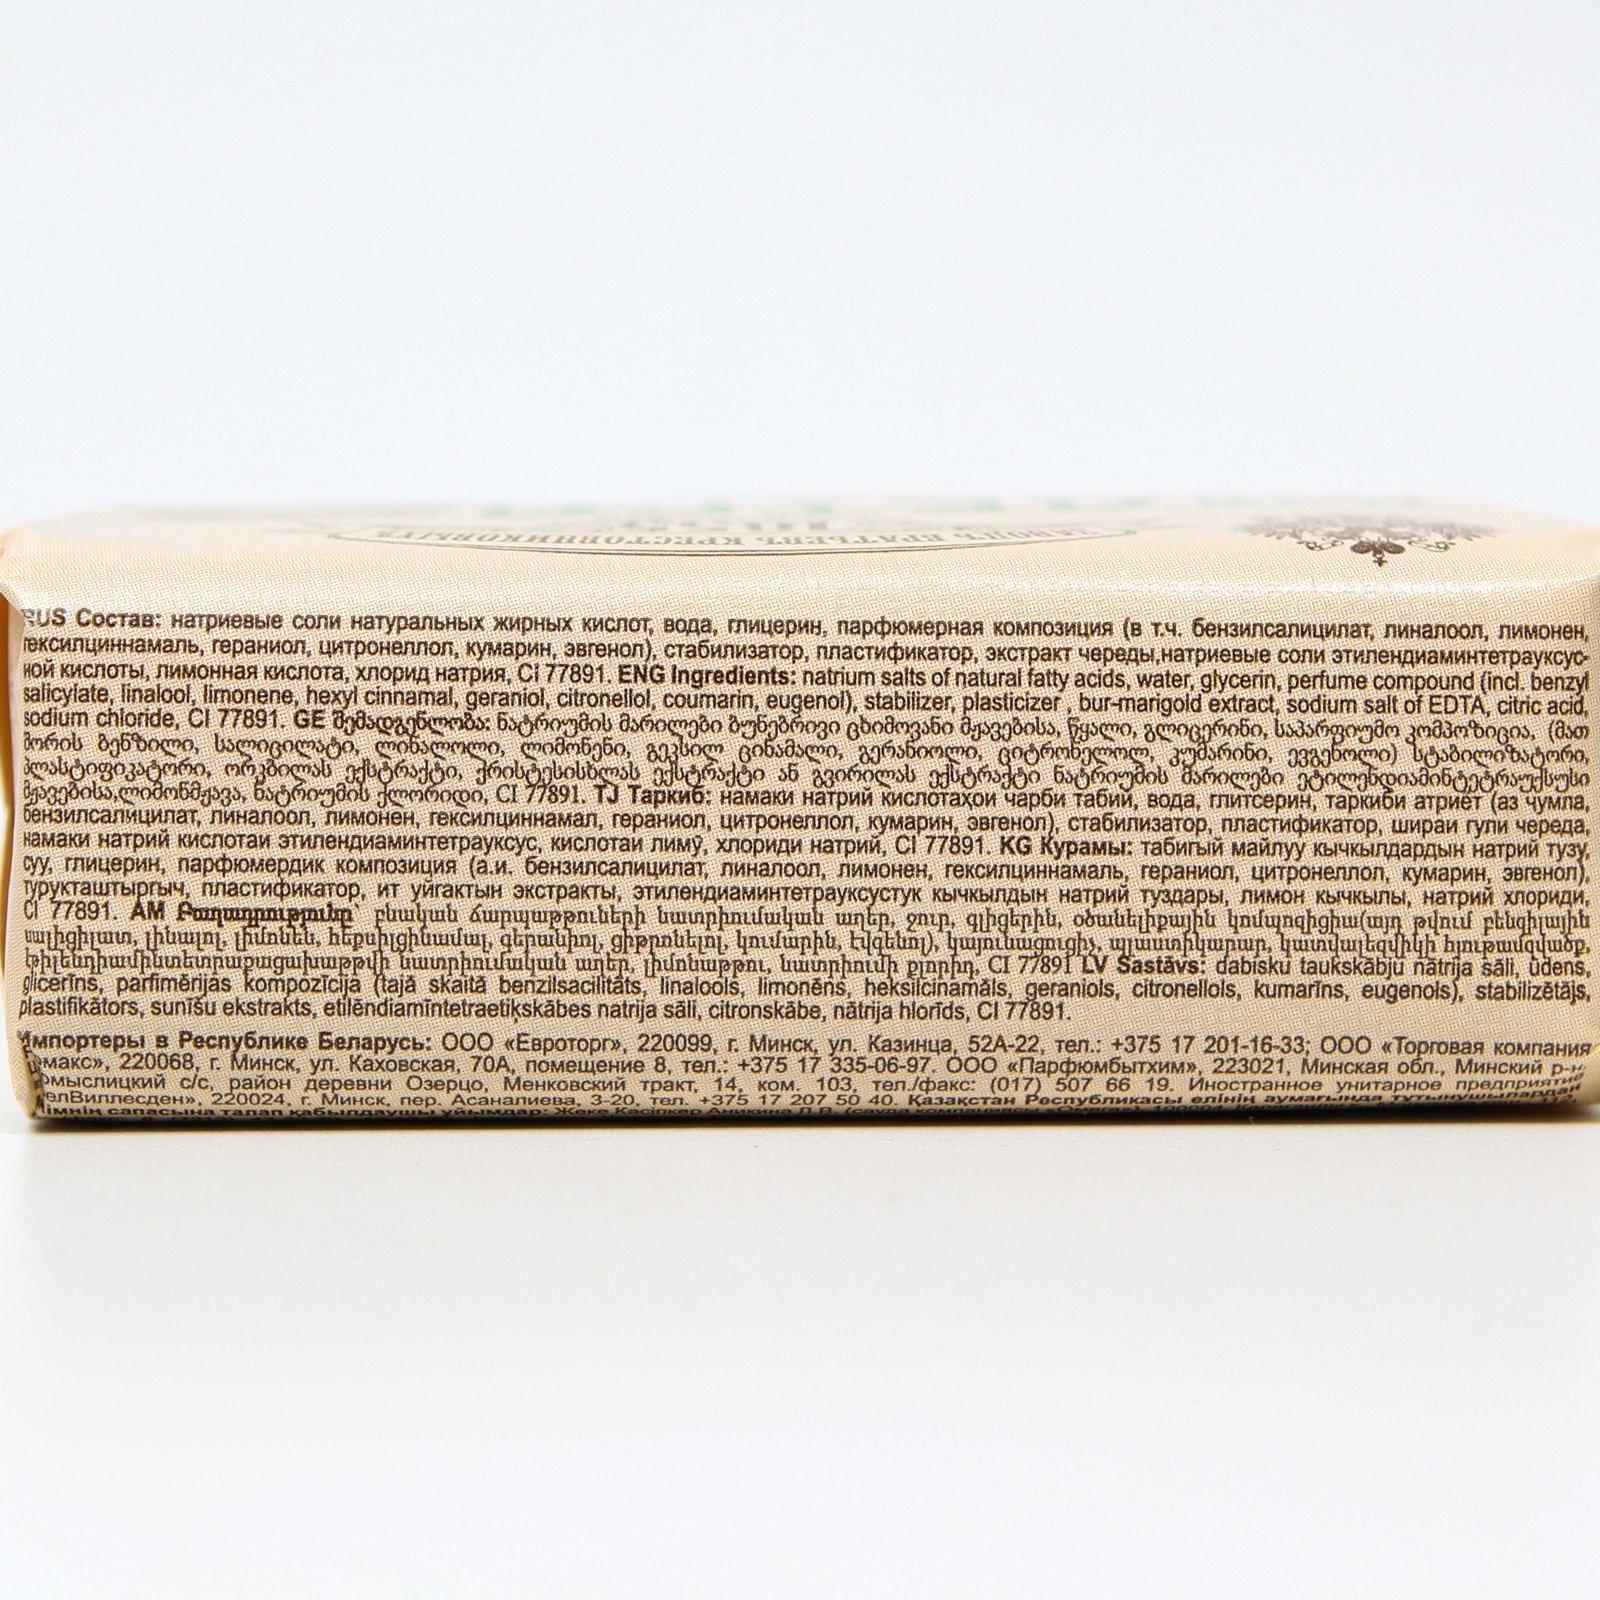 ЗАВОДЪ БРАТЬЕВЪ КРЕСТОВНИКОВЫХЪ
RUS Состав: натриевые соли натуральных жирных кислот, вода, глицерин, парфюмерная композиция (в т.ч. бензилсалицилат, линалоол, лимонен,
гексилциннамаль, гераниол, цитронеллол, кумарин, эвгенол), стабилизатор, пластификатор, экстракт череды,натриевые соли этилендиаминтетрауксус-
ной кислоты, лимонная кислота, хлорид натрия, CI 77891. ENG Ingredients: natrium salts of natural fatty acids, water, glycerin, perfume compound (incl. benzyl
salicylate, linalool, limonene, hexyl cinnamal, geraniol, citronellol, coumarin, eugenol), stabilizer, plasticizer , bur-marigold extract, sodium salt of EDTA, citric acid,
sodium chloride, CI 77891. GE შემადგენლობა: ნატრიუმის მარილები ბუნებრივი ცხიმოვანი მჟავებისა, წყალი, გლიცერინი, საპარფიუმო კომპოზიცია, (მათ
შორის ბენზილი, სალიცილატი, ლინალოლი, ლიმონენი, გეკსილ ცინამალი, გერანიოლი, ციტრონელოლ, კუმარინი, ევგენოლი) სტაბილიზატორი,
პლასტიფიკატორი, ორკბილას ექსტრაქტი, ქრისტესისხლას ექსტრაქტი ან გვირილას ექსტრაქტი ნატრიუმის მარილები ეტილენდიამინტეტრაუქსუსი
მჟავებისა,ლიმონმჟავა, ნატრიუმის ქლორიდი, CI 77891. TJ Таркиб: намаки натрий кислотаҳои чарби табий, вода, глитсерин, таркиби атриёт (аз чумла,
бензилсалицилат, линалоол, лимонен, гексилциннамал, гераниол, цитронеллол, кумарин, эвгенол), стабилизатор, пластификатор, шираи гули череда,
намаки натрий кислотаи этилендиаминтетрауксус, кислотаи лимӯ, хлориди натрий, CI 77891. KG Курамы: табигый майлуу кычкылдардын натрий тузу,
суу, глицерин, парфюмердик композиция (а.и. бензилсалицилат, линалоол, лимонен, гексилциннамаль, гераниол, цитронеллол, кумарин, эвгенол),
турукташтыргыч, пластификатор, ит уйгактын экстракты, этилендиаминтетрауксустук кычкылдын натрий туздары, лимон кычкылы, натрий хлориди,
CI 77891. AM Բաղադրությունը՝ բնական ճարպաթթուների նատրիումական աղեր, ջուր, գլիցերին, օծանելիքային կոմպոզիցիա(այդ թվում բենզիլային
սալիցիլատ, լինալոլ, լիմոնեն, հեքսիլցինամալ, գերանիոլ, ցիթրոնելոլ, կումարին, էվգենոլ), կայունացուցիչ, պլաստիկարար, կատվալեզվիկի հյութամզվածք,
էթիլենդիամինտետրաքացախաթթվի նատրիումական աղեր, լիմոնաթթու, նատրիումի քլորիդ, CI 77891 LV Sastāvs: dabisku taukskābju nātrija sāli, ūdens,
glicerīns, parfimērijas kompozīcija (tajā skaitā benzilsacilitāts, linalools, limonēns, heksilcinamāls, geraniols, citronellols, kumarīns, eugenols), stabilizētājs,
plastifikātors, sunīšu ekstrakts, etilēndiamīntetraetiķskābes natrija sāli, citronskābe, nātrija hlorīds, CI 77891.
Импортеры в Республике Беларусь: ООО «Евроторг», 220099, г. Минск, ул. Казинца, 52А-22, тел.: +375 17 201-16-33; ООО «Торговая компания
220068, г. Минск, ул. Каховская, 70А, помещение 8, тел.: +375 17 335-06-97. ООО «Парфюмбытхим», 223021, Минская обл., Минский р-н,
с/с, район деревни Озерцо, Менковский тракт, 14, ком. 103, тел./факс: (017) 507 66 19. Иностранное унитарное предприятие
220024, г. Минск, пер. Асаналиева, 3-20, тел. +375 17 207 50 40. Қазақстан Республикасы елінің аумағында тұтынушылардан
сапасына талап қабылдаушы ұйымдар: Жеке Кәсіпкер Аникина